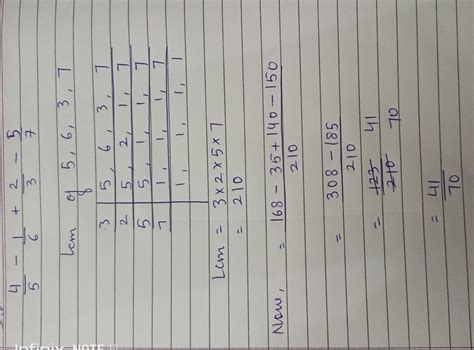 4/5 - 1/6 + 2/3 - 5/7
Lcm of 5, 6, 3, 7
3 | 5, 6, 3, 7
2 | 5, 2, 1, 7
5 | 5, 1, 1, 7
7 | 1, 1, 1, 7
1, 1, 1, 1
Lcm = 3 x 2 x 5 x 7
= 210
Now, = 168 - 35 + 140 - 150 / 210
= 308 - 185 / 210
= 123 / 210 41 / 70
= 41/70
Infinix NOTE 11